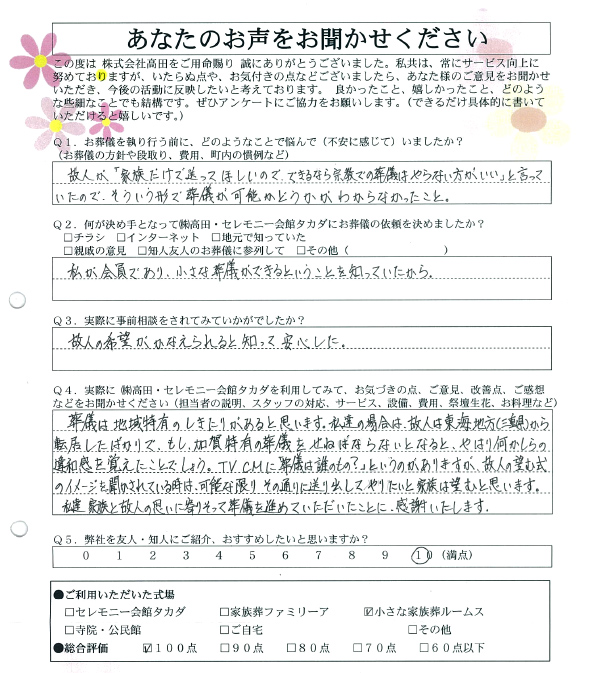 あなたのお声をお聞かせください
この度は 株式会社高田をご用命賜り 誠にありがとうございました。私共は、常にサービス向上に
努めておりますが、いたらぬ点や、お気付きの点などございましたら、あなた様のご意見をお聞かせ
いただき、今後の活動に反映したいと考えております。 良かったこと、嬉しかったこと、どのよう
な些細なことでも結構です。ぜひアンケートにご協力をお願いします。(できるだけ具体的に書いて
いただけると嬉しいです。)
Q1.お葬儀を執り行う前に、どのようなことで悩んで(不安に感じて)いましたか?
(お葬儀の方針や段取り、費用、町内の慣例など)
故人が、「家族だけで送ってほしいので、できるなら宗教での葬儀はやらない方がいい」と言って
いたので、そういう形で葬儀が可能かどうかがわからなかったこと。
Q2.何が決め手となって㈱高田・セレモニー会館タカダにお葬儀の依頼を決めましたか?
□チラシ □インターネット □地元で知っていた
□親戚の意見 □知人友人のお葬儀に参列して □その他( )
私が会員であり、小さな葬儀ができるということを知っていたから。
Q3.実際に事前相談をされてみていかがでしたか?
故人の希望がかなえられると知って安心した。
Q4.実際に ㈱高田・セレモニー会館タカダを利用してみて、お気づきの点、ご意見、改善点、ご感想
などをお聞かせください(担当者の説明、スタッフの対応、サービス、設備、費用、祭壇生花、お料理など)
葬儀は地域特有のしきたりがあると思います。私達の場合は、故人は東海地方(三重県)から
転居したばかりで、もし、加賀特有の葬儀をせねばならないとなると、やはり何かしらの
違和感を覚えたことでしょう。TVCMに「葬儀は誰のもの?」というのがありますが、故人の望む式
のイメージを聞かされている時は、可能な限りその通りに送り出してやりたいと家族は望むと思います。
私達家族と故人の思いに寄りそって葬儀を進めていただいたことに、感謝いたします。
Q5.弊社を友人・知人にご紹介、おすすめしたいと思いますか?
0 1 2 3 4 5 6 7 8 9 10(満点)
●ご利用いただいた式場
□セレモニー会館タカダ □家族葬ファミリーア ☑小さな家族葬ルームス
□寺院・公民館 □ご自宅 □その他
●総合評価 ☑100点 □90点 □80点 □70点 □60点以下